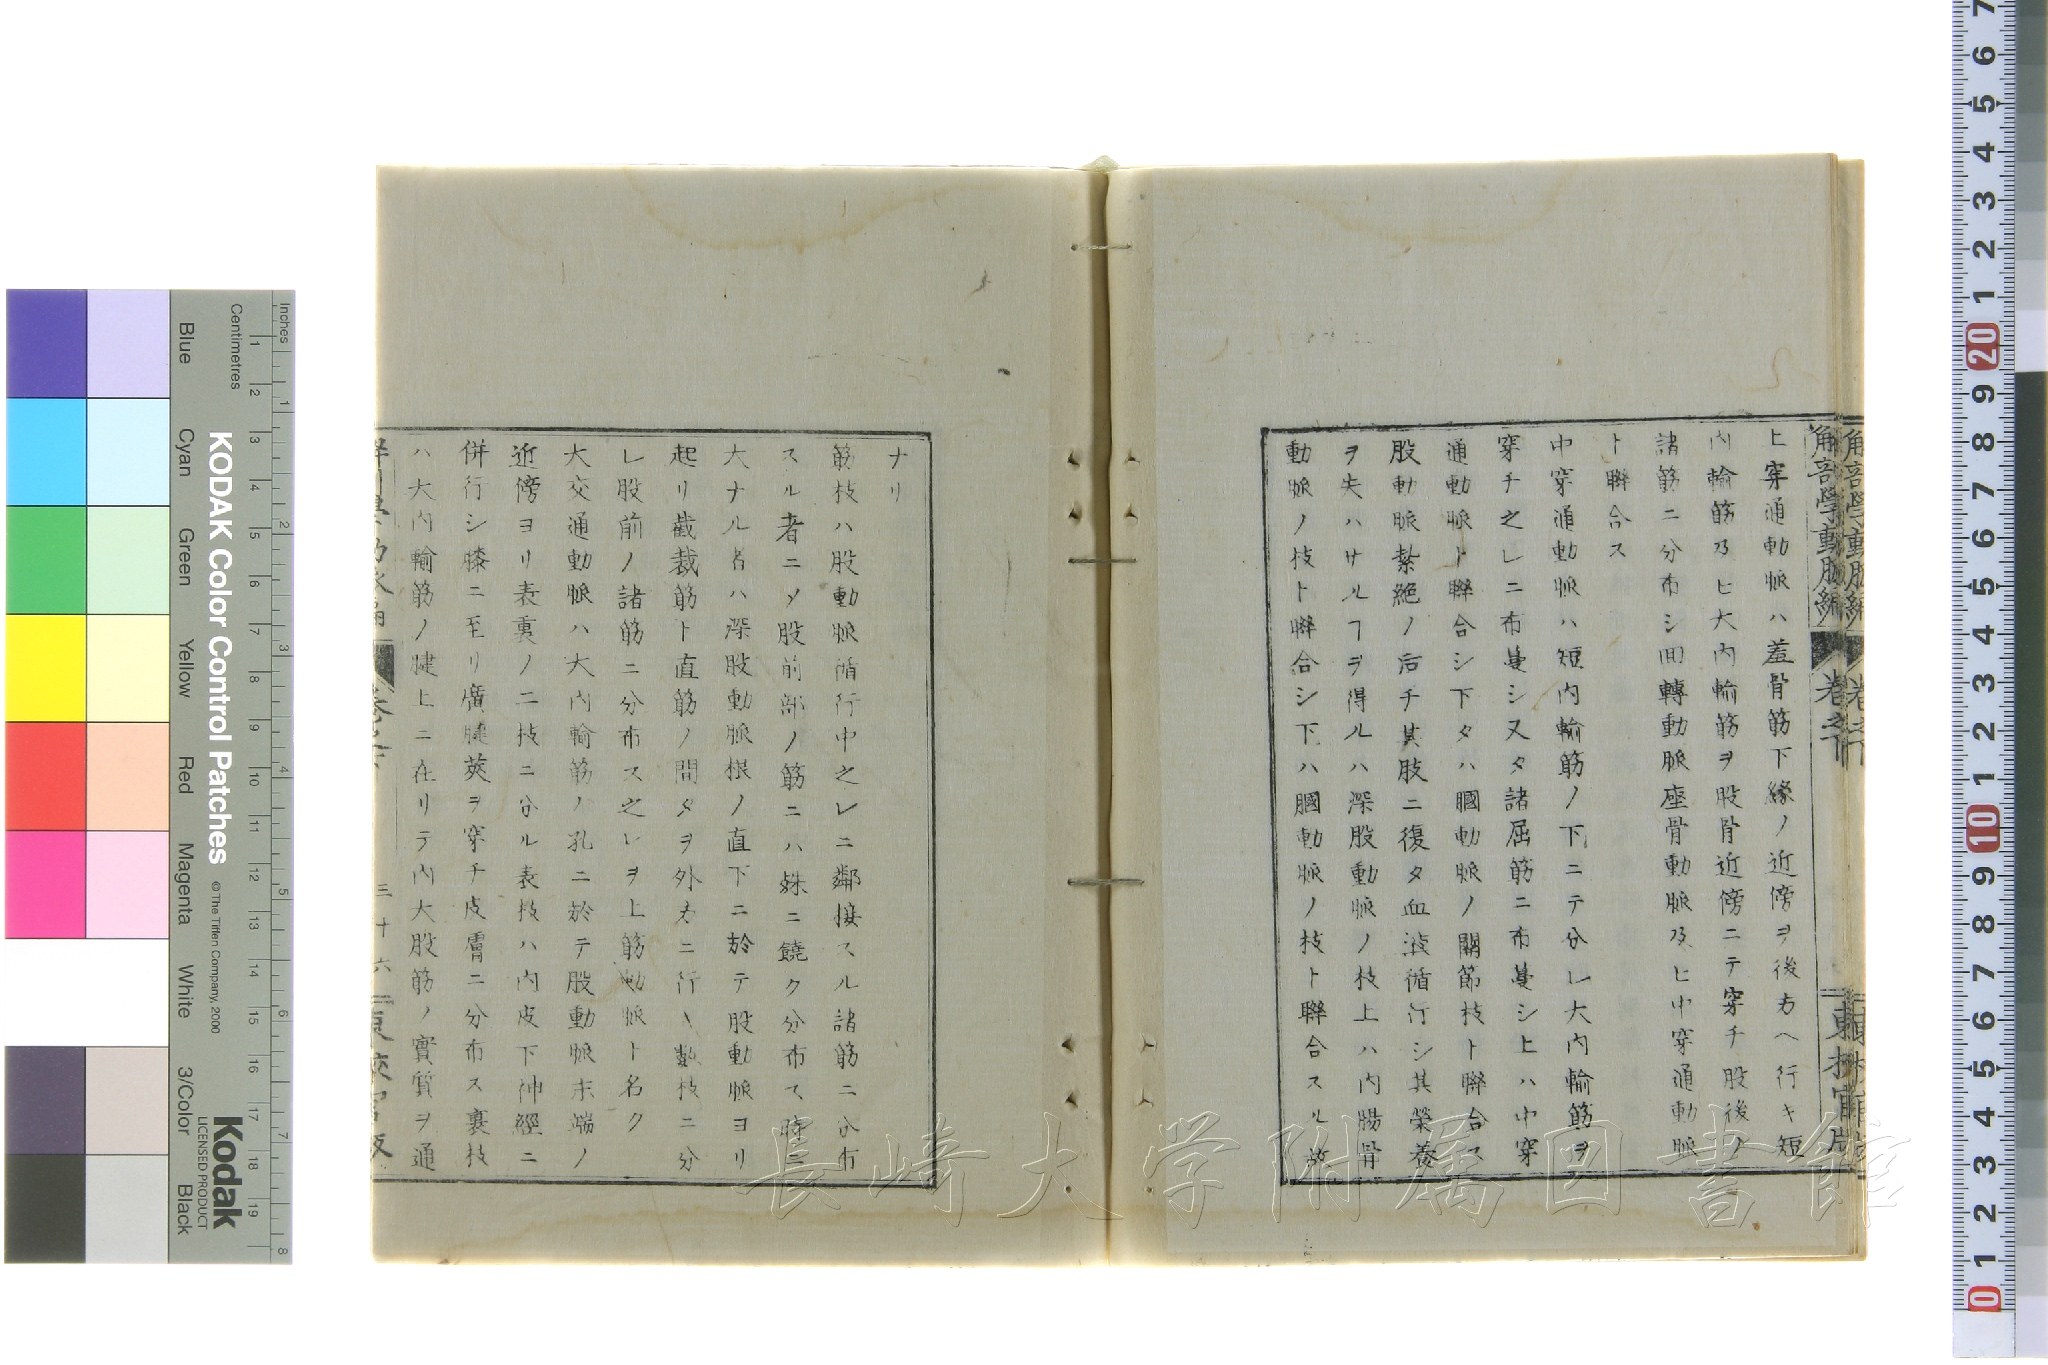 上穿通動脈ハ羞骨筋下縁ノ近傍ヲ後方ヘ行キ短
内輸筋及ヒ大内輸筋ヲ股骨近傍ニテ穿チ股後ノ
諸筋ニ分布シ回轉動脈座骨動脈及ヒ中穿通動脈
ト聯合ス
中穿通動脈ハ短内輸筋ノ下ニテ分レ大内輸筋ヲ
穿チ之レニ布蔓シ又タ諸屈筋ニ布蔓シ上ハ中穿
通動脈ト聯合シ下タハ膕動脈ノ關節枝ト聯合ス
股動脈紮絶ノ后チ其肢ニ復タ血液循行シ其榮養
ヲ失ハサルヿヲ得ルハ深股動脈ノ枝上ハ内腸骨
動脈ノ枝ト聯合シ下ハ膕動脈ノ枝ト聯合スル故
ナリ
筋枝ハ股動脈循行中之レニ鄰接スル諸筋ニ分布
スル者ニメ股前部ノ筋ニハ殊ニ饒ク分布ス
大ナル者ハ深股動脈根ノ直下ニ於テ股動脈ヨリ
起リ裁裁筋ト直筋ノ間タヲ外方ニ行ヽ數枝ニ分
レ股前ノ諸筋ニ分布ス之レヲ上筋動脈ト名ク
大交通動脈ハ大内輸筋ノ孔ニ於テ股動脈末端ノ
近傍ヨリ表裏ノ二枝ニ分ル表枝ハ内皮下神經ニ
併行シ膝ニ至リ廣腱莢ヲ穿チ皮膚ニ分布ス裏枝
ハ大内輸筋ノ腱上ニ在リテ内大股筋ノ實質ヲ通
解剖學動脈編
卷之下
三十六
東校官版
KODAK Color Control Patches
© The Tiffen Company, 2000
Kodak
LICENSED PRODUCT
Inches
Centimetres
Blue
Cyan
Green
Yellow
Red
Magenta
White
3/Color
Black
長崎大学附属図書館